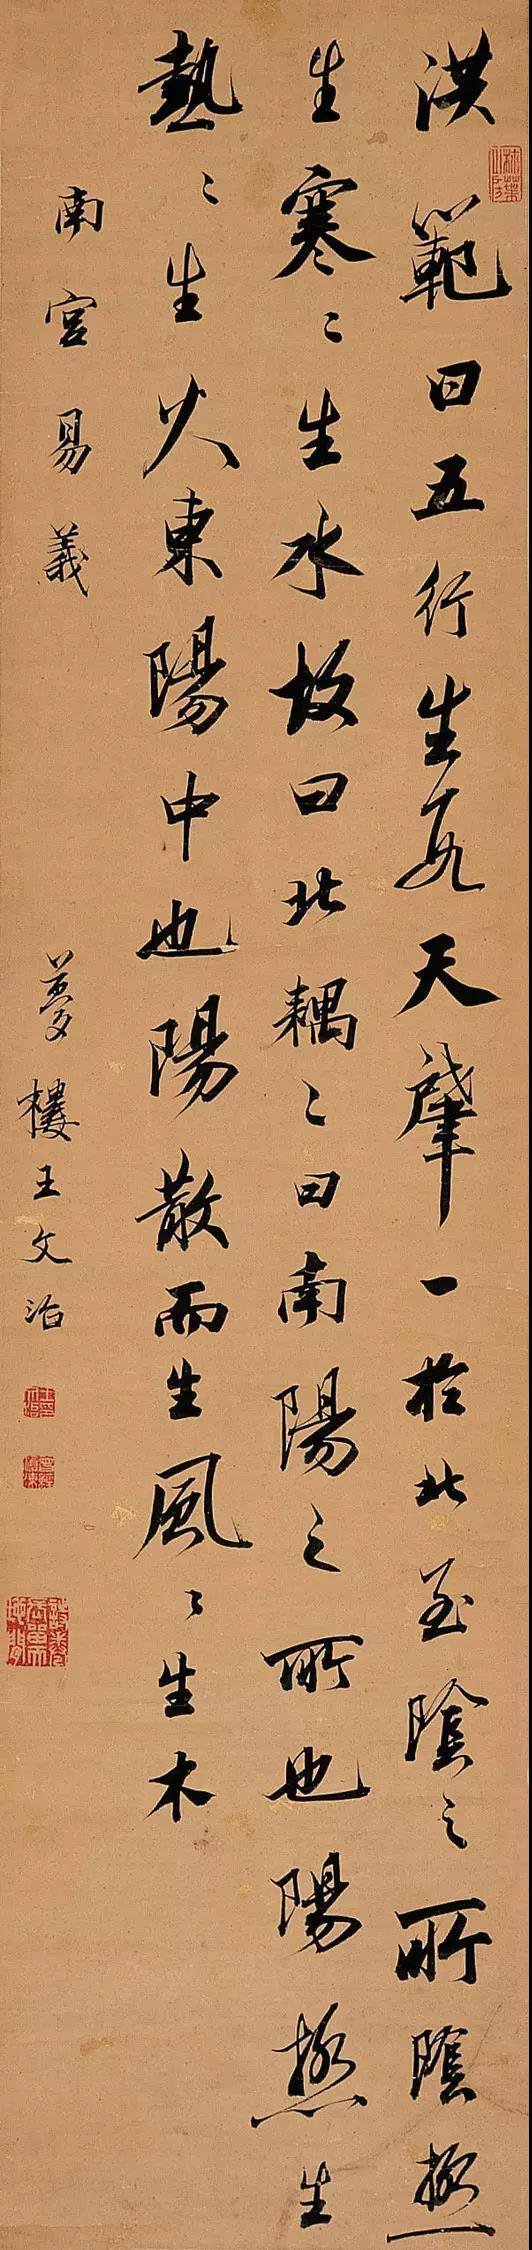 洪範曰五行生數天肇一於北至陰之所陰極
生寒〻生水故曰北耦〻曰南陽之所也陽極生
熱〻生火東陽中也陽散而生風〻生木
南宮易義
夢樓王文治